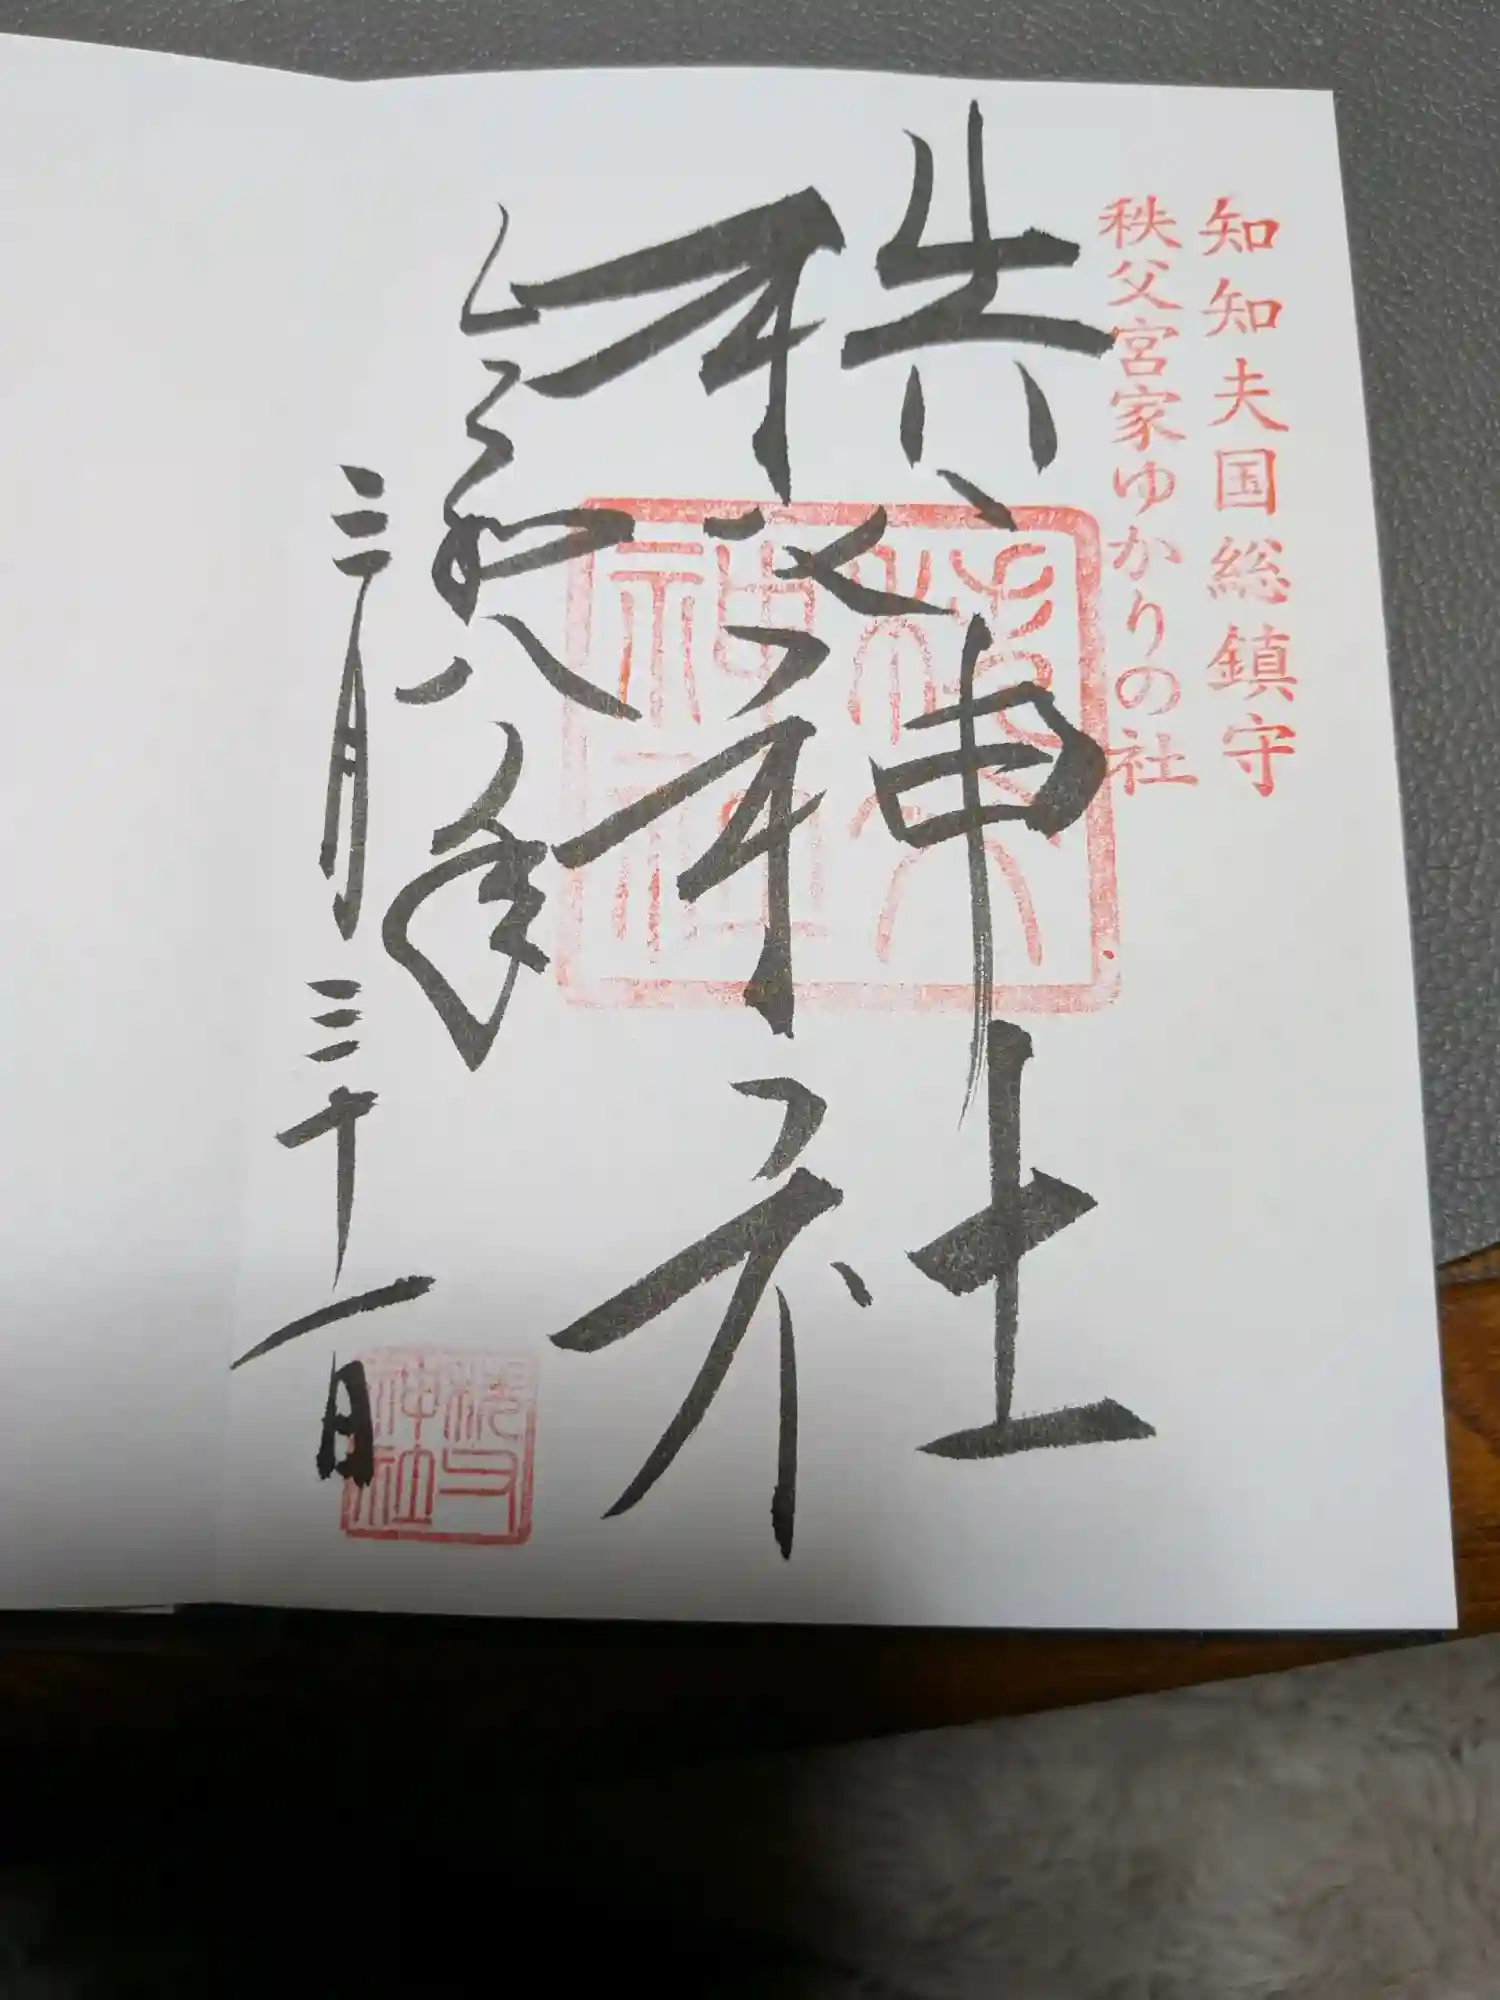 知知夫国総鎮守
秩父宮家ゆかりの社
秩父神社
秩父神社
令和八年
三月三十一日
秩父神社